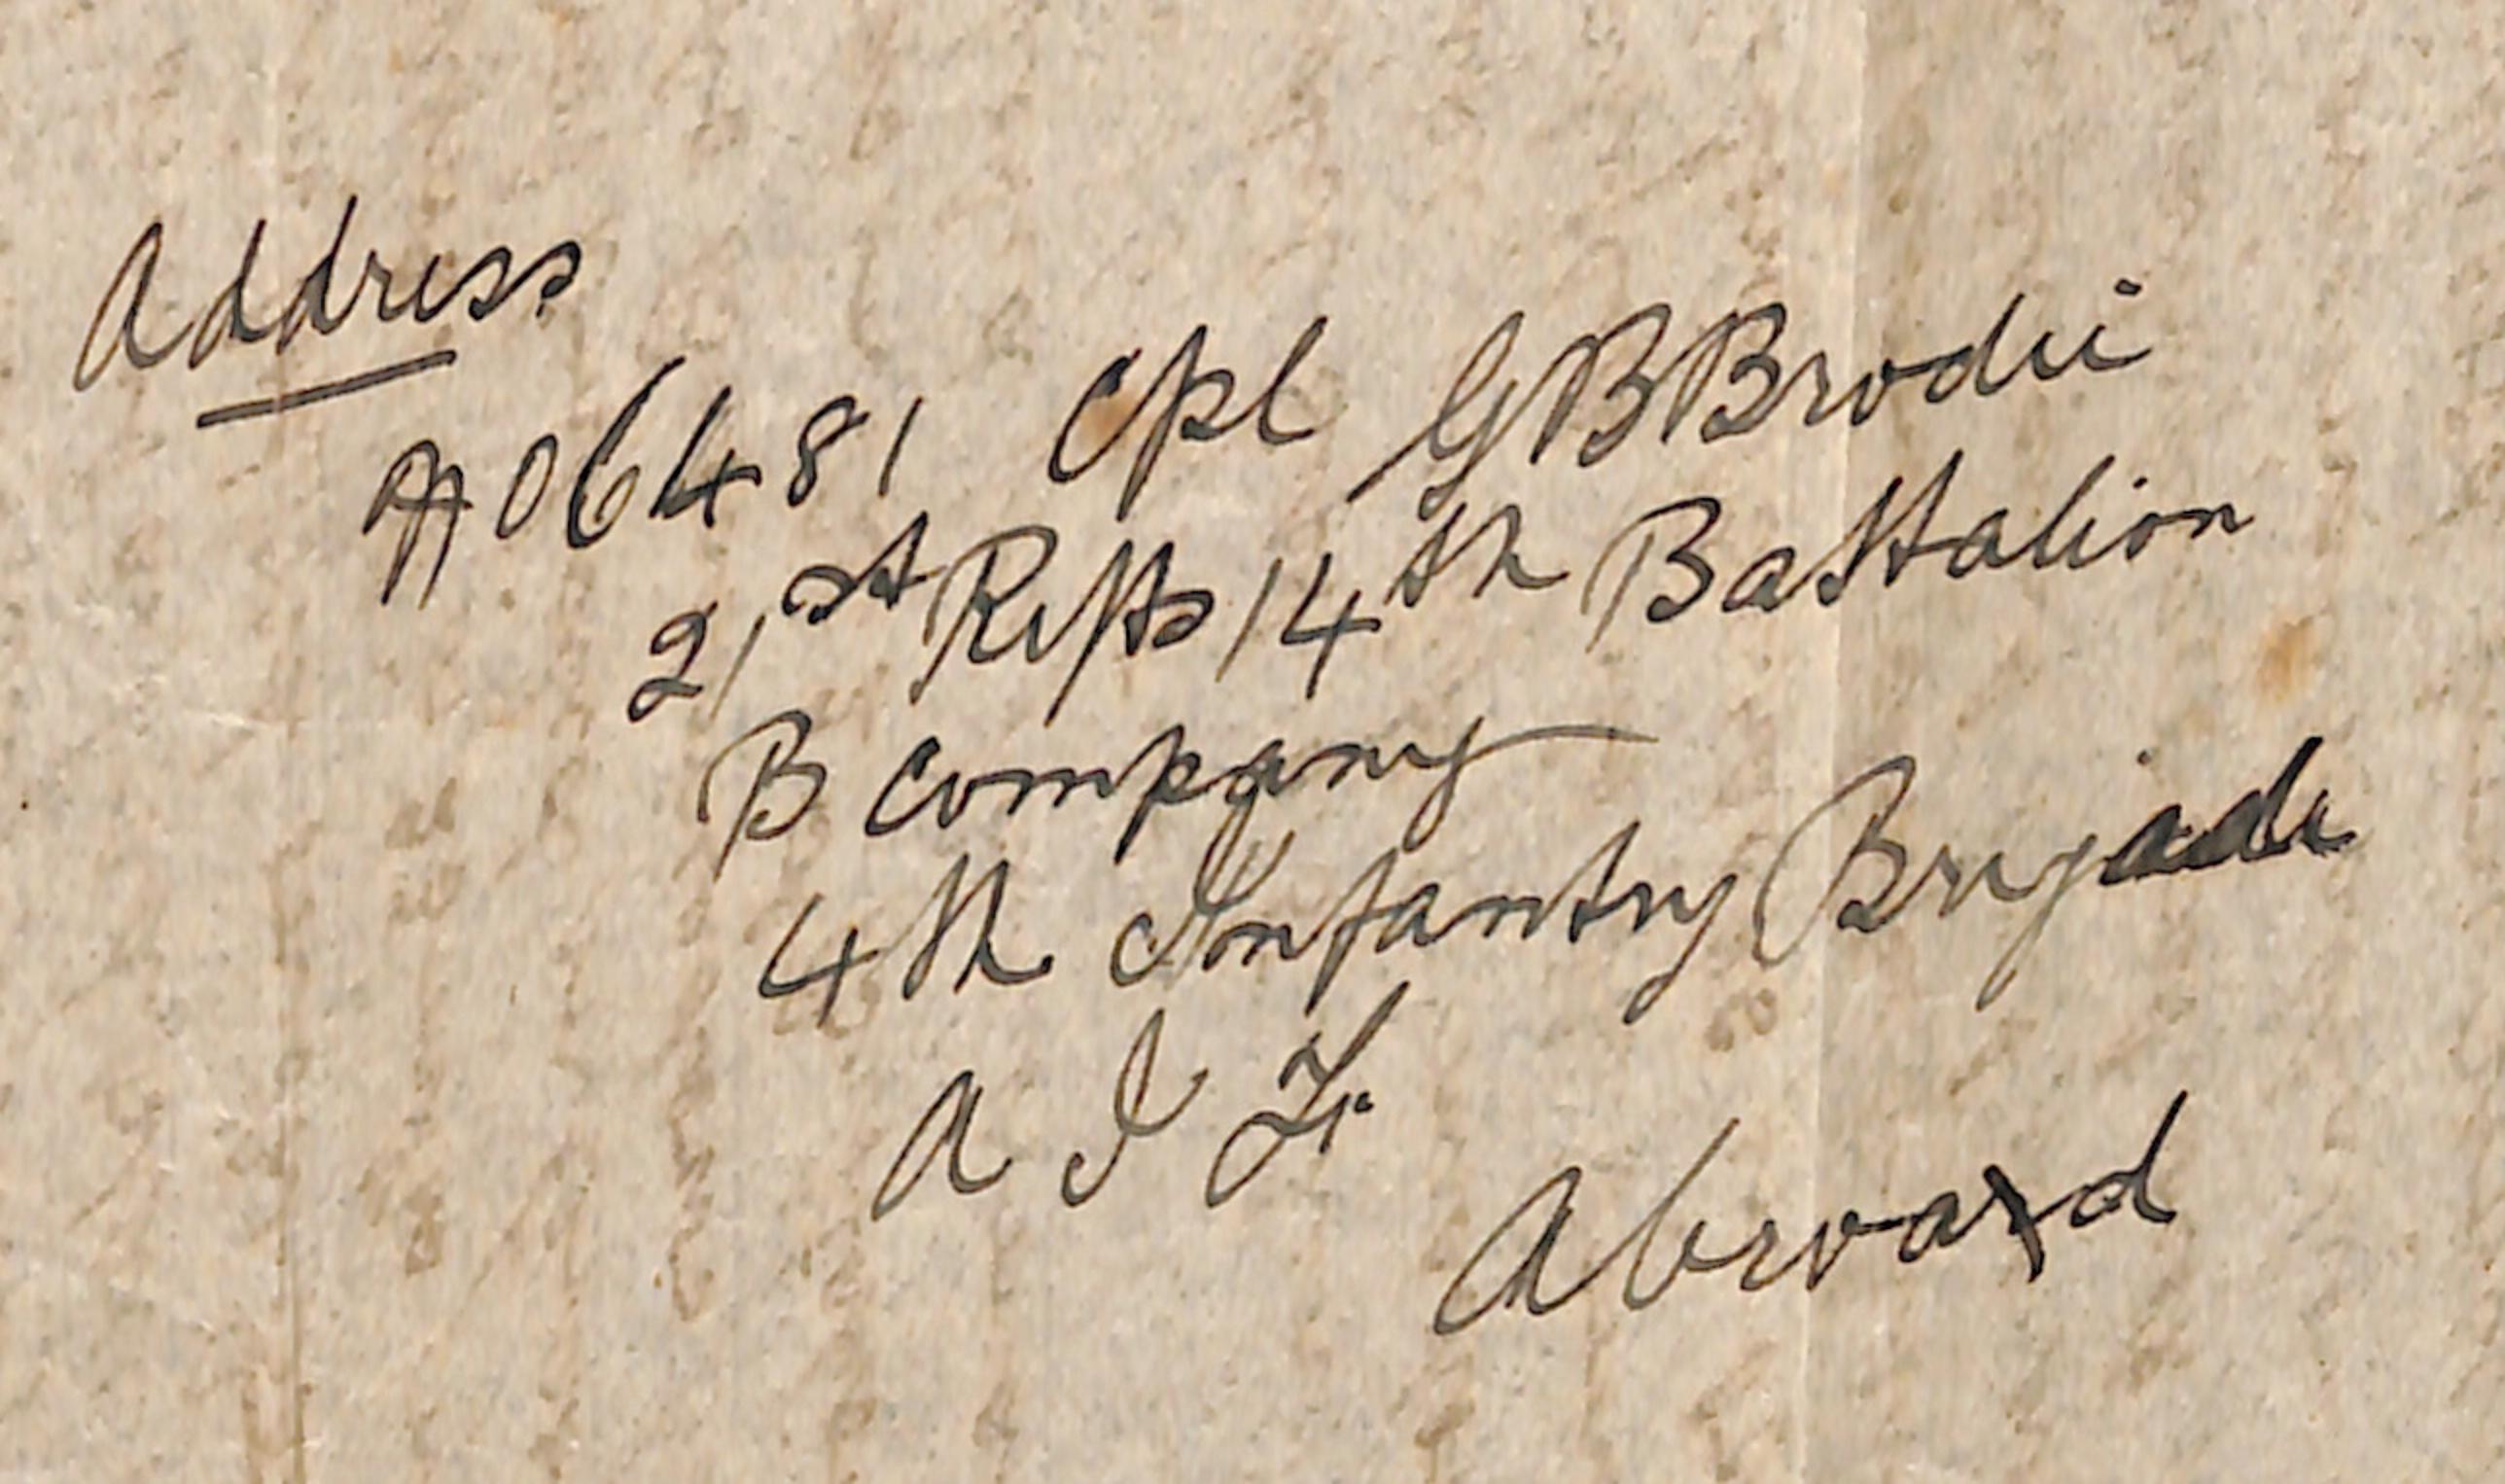 Address
No 6481 Cpl G B Brodie
21st Rfts 14th Battalion
B Company
4th Infantry Brigade
A I F
Abroad